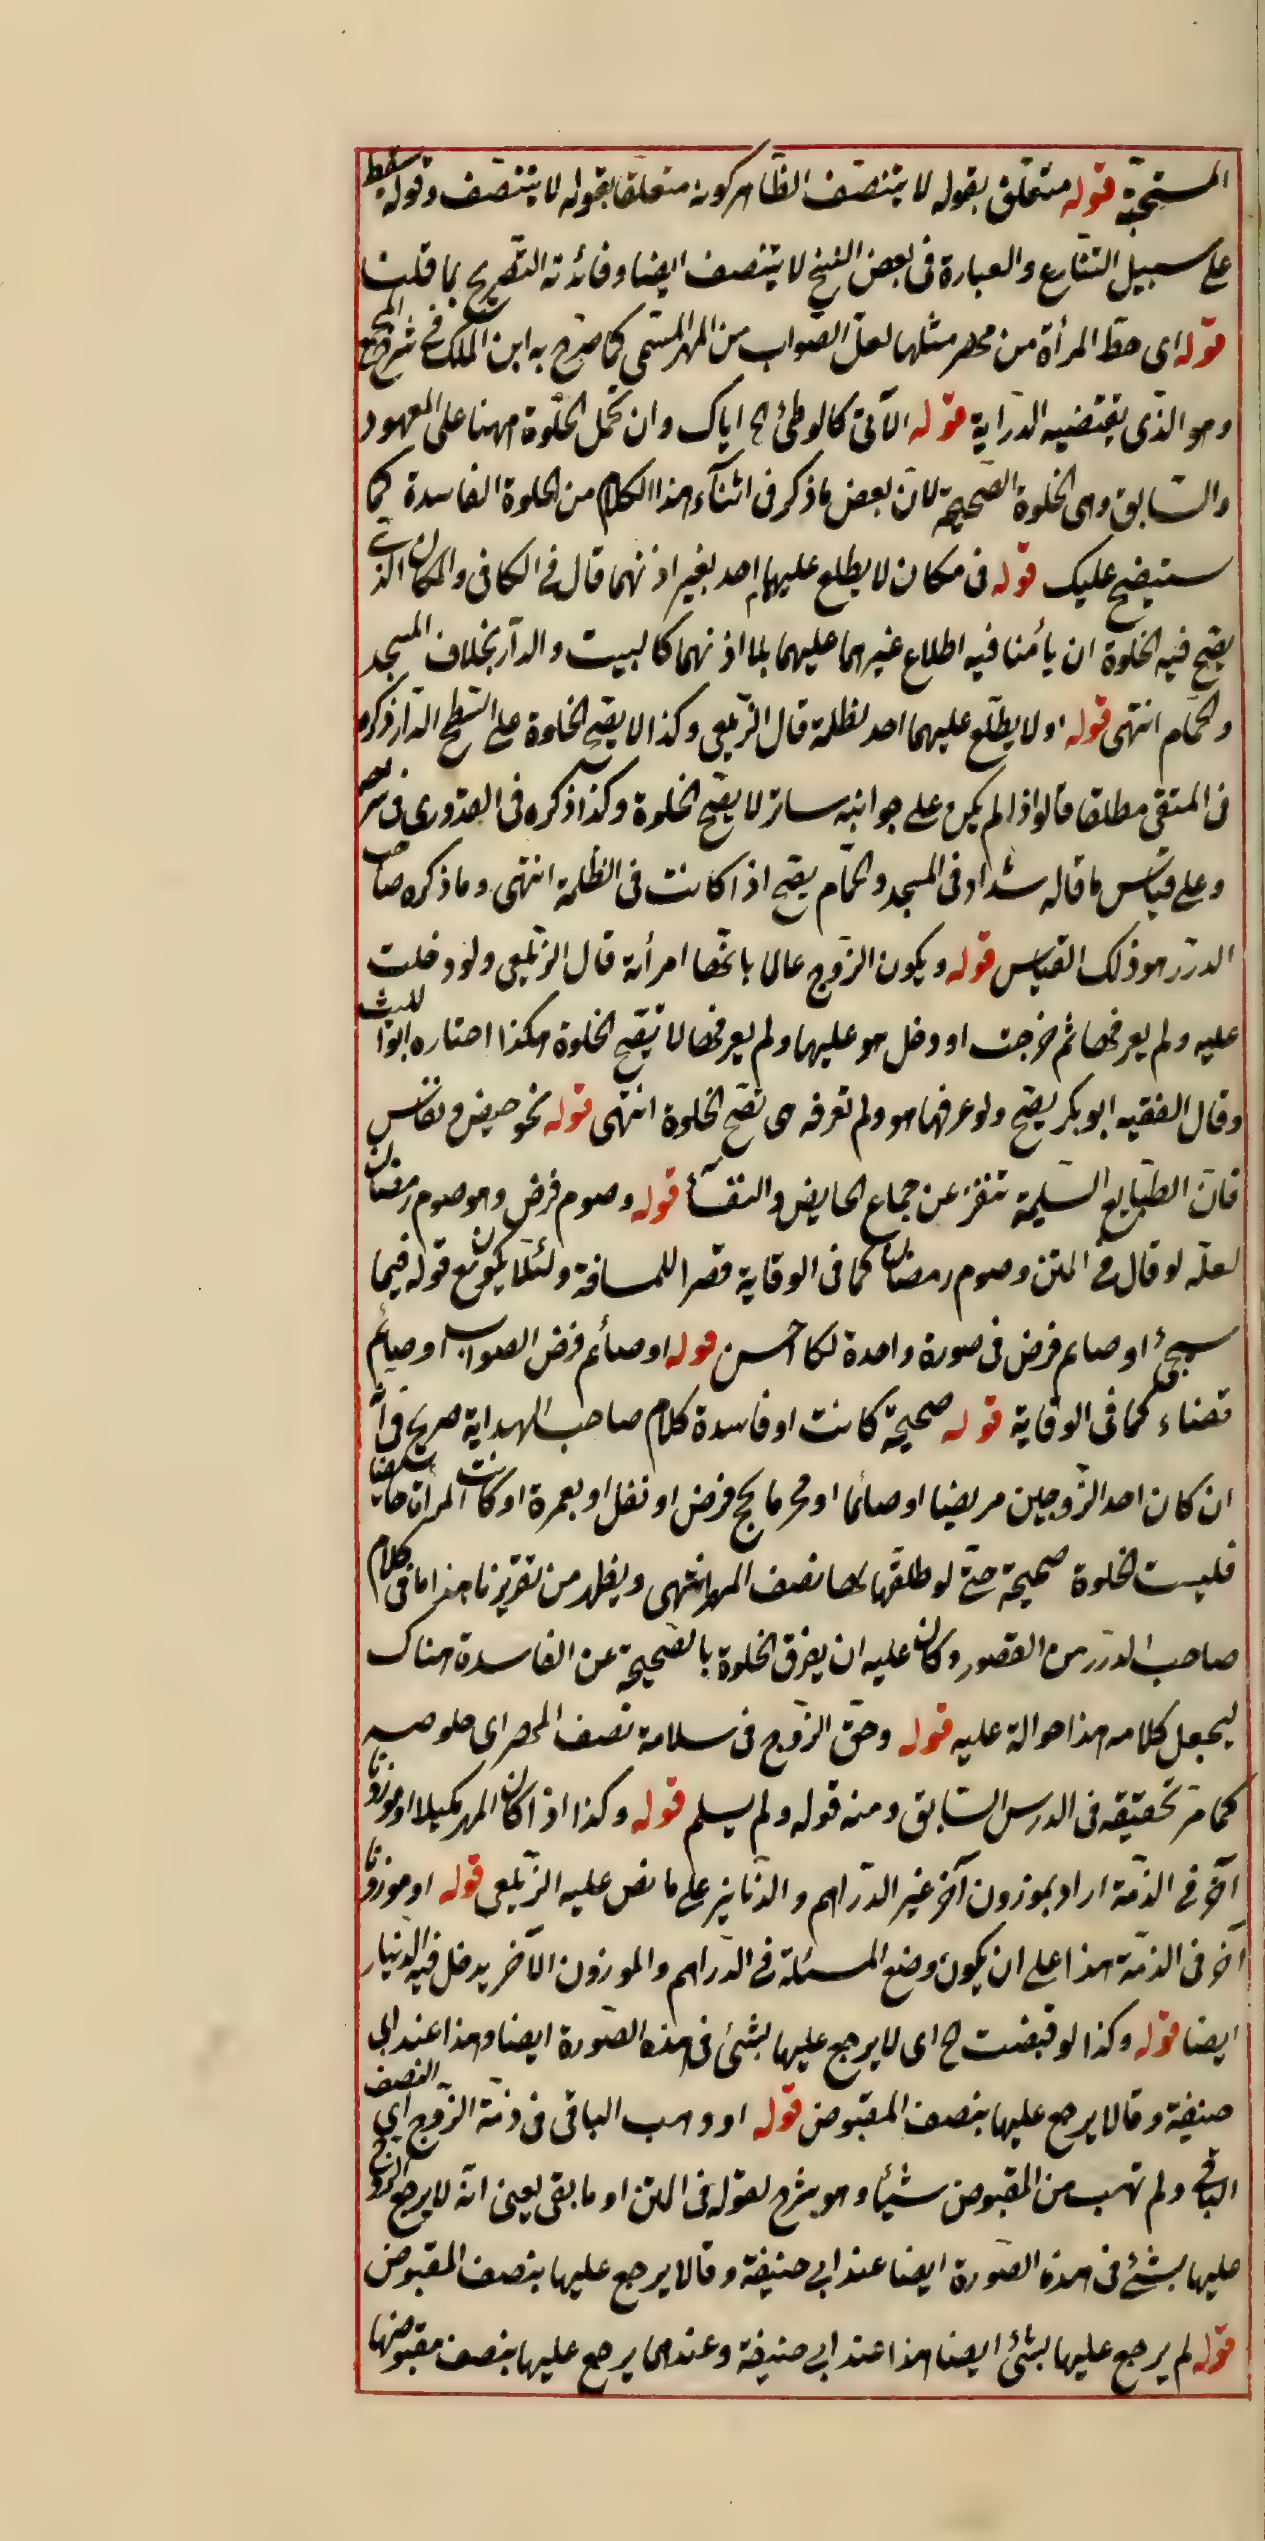 المستحبّة قوله متعلّق بقوله لا يتنصّف الظّاهر كونه متعلقا بقوله لا يتنصّف وقوله سقط
على سبيل التنازع والعبارة فى بعض النسخ لا يتنصف ايضا وفائدته التصريح بما قلنا
قوله اى حظّ المرأة من مهر مثلها لعلّ الصّواب من المهر المسمّى كما صرّح به ابن الملك فى شرح المجمع
وهو الّذى يقتضيه الدّراية قوله الآتى كالوطئ الخ اياك وان تحمل الخلوة ههنا على المعهود
والسّابق وهى الخلوة الصّحيحة لانّ بعض ما ذكر فى اثنآء هذا الكلام من الخلوة الفاسدة كما
ستيضح عليك قوله فى مكان لا يطلع عليهما احد بغير اذنهما قال فى الكافى والمكان الذى
يصّح فيه الخلوة ان يأمنا فيه اطلاع غيرهما عليهما بلا اذنهما كالبيت والدّار بخلاف المسجد
والحمّام انتهى قوله او لا يطّلع عليهما احد لظلمة قال الزّيلعى وكذا لا يصّح الخلوة على السّطح الدّار ذكره
فى المنتقى مطلقا قالوا اذا لم يكن على جوانبه ساتر لا يصّح الخلوة وكذا ذكره فى القدّورى فى شرحه
وعلى قياس ما قاله شداد فى المسجد والحمّام يصّح اذا كانت فى الظّلمة انتهى وما ذكره صاحب
الدرر هو ذلك القياس قوله ويكون الزّوج عالما بانّها امرأته قال الزيلعى ولو دخلت
عليه ولم يعرفها ثم خرجت او دخل هو عليها ولم يعرفها لا تصّح الخلوة هكذا اختاره ابو الليث
وقال الفقيه ابو بكر يصّح ولو عرفها هو ولم تعرفه هى تصّح الخلوة انتهى قوله نحو حيض ونفاس
فانّ الطّبايع السّليمة تنفر عن جماع الحايض والنفسآء قوله وصوم فرض وهو صوم رمضان
لعلّه لو قال فى المتن وصوم رمضان كما فى الوقاية قصرا للمسافة ولئلّا يكون مع قوله فيما
سيجئ او صائم فرض فى صورة واحدة لكا احسن قوله او صائم فرض الصواب او صيام
قضاء كما فى الوقاية قوله صحيحة كانت او فاسدة كلام صاحب الهداية صريح فى انّه
ان كان احد الزّوجين مريضا او صائما او محرما بحج فرض او نفل او بعمرة او كانت المرأة حائضا
فليست الخلوة صحيحة حتّى لو طلّقها لها نصف المهر انتهى ويظهر من تقريرنا هذا ما فى كلام
صاحب الدرر من القصور وكان عليه ان يفرق الخلوة بالصّحيحة عن الفاسدة هناك
ليجعل كلامه هذا حوالة عليه قوله وحقّ الزّوج فى سلامة نصف المهر اى خلوصه
كما مرّ تحقيقه فى الدرس السّابق ومنه قوله ولم يسلم قوله وكذا اذا كان المهر مكيلا او موزونا
آخر فى الذمّة اراد بموزون آخر غير الدّراهم والدّنانير على ما نص عليه الزّيلعى قوله او موزونا
آخر فى الذمّة هذا على ان يكون وضع المسئلة فى الدّراهم والموزون الآخر يدخل فيه الدنيار
ايضا قوله وكذا لو قبضت الخ اى لا يرجع عليها بشئ فى هذه الصّورة ايضا وهذا عند ابى
حنيفة وقالا يرجع عليها بنصف المقبوض قوله او وهب الباقى فى ذمّة الزّوج اى النصف
الباقى ولم تهب من المقبوض شيئا وهو شرح لقوله فى المتن او ما بقى يعنى انّه لا يرجع الزوج
عليها بشئ فى هذه الصّورة ايضا عند ابى حنيفة وقالا يرجع عليها بنصف المقبوض
قوله لم يرجع عليها بشئ ايضا هذا عند ابى حنيفة وعندهما يرجع عليها بنصف مقبوضها